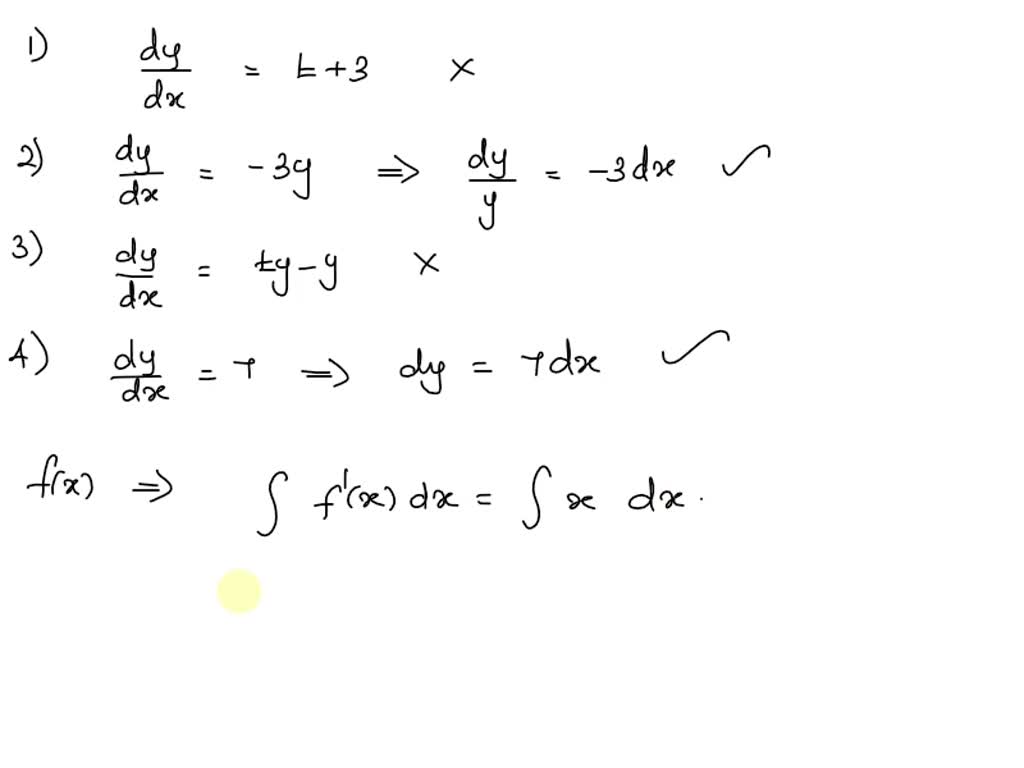 1) dy/dx = t + 3 ×
2) dy/dx = -3y ⇒ dy/y = -3dx ✓
3) dy/dx = ty - y ×
4) dy/dx = 7 ⇒ dy = 7dx ✓
f(x) ⇒ ∫ f'(x) dx = ∫ x dx.